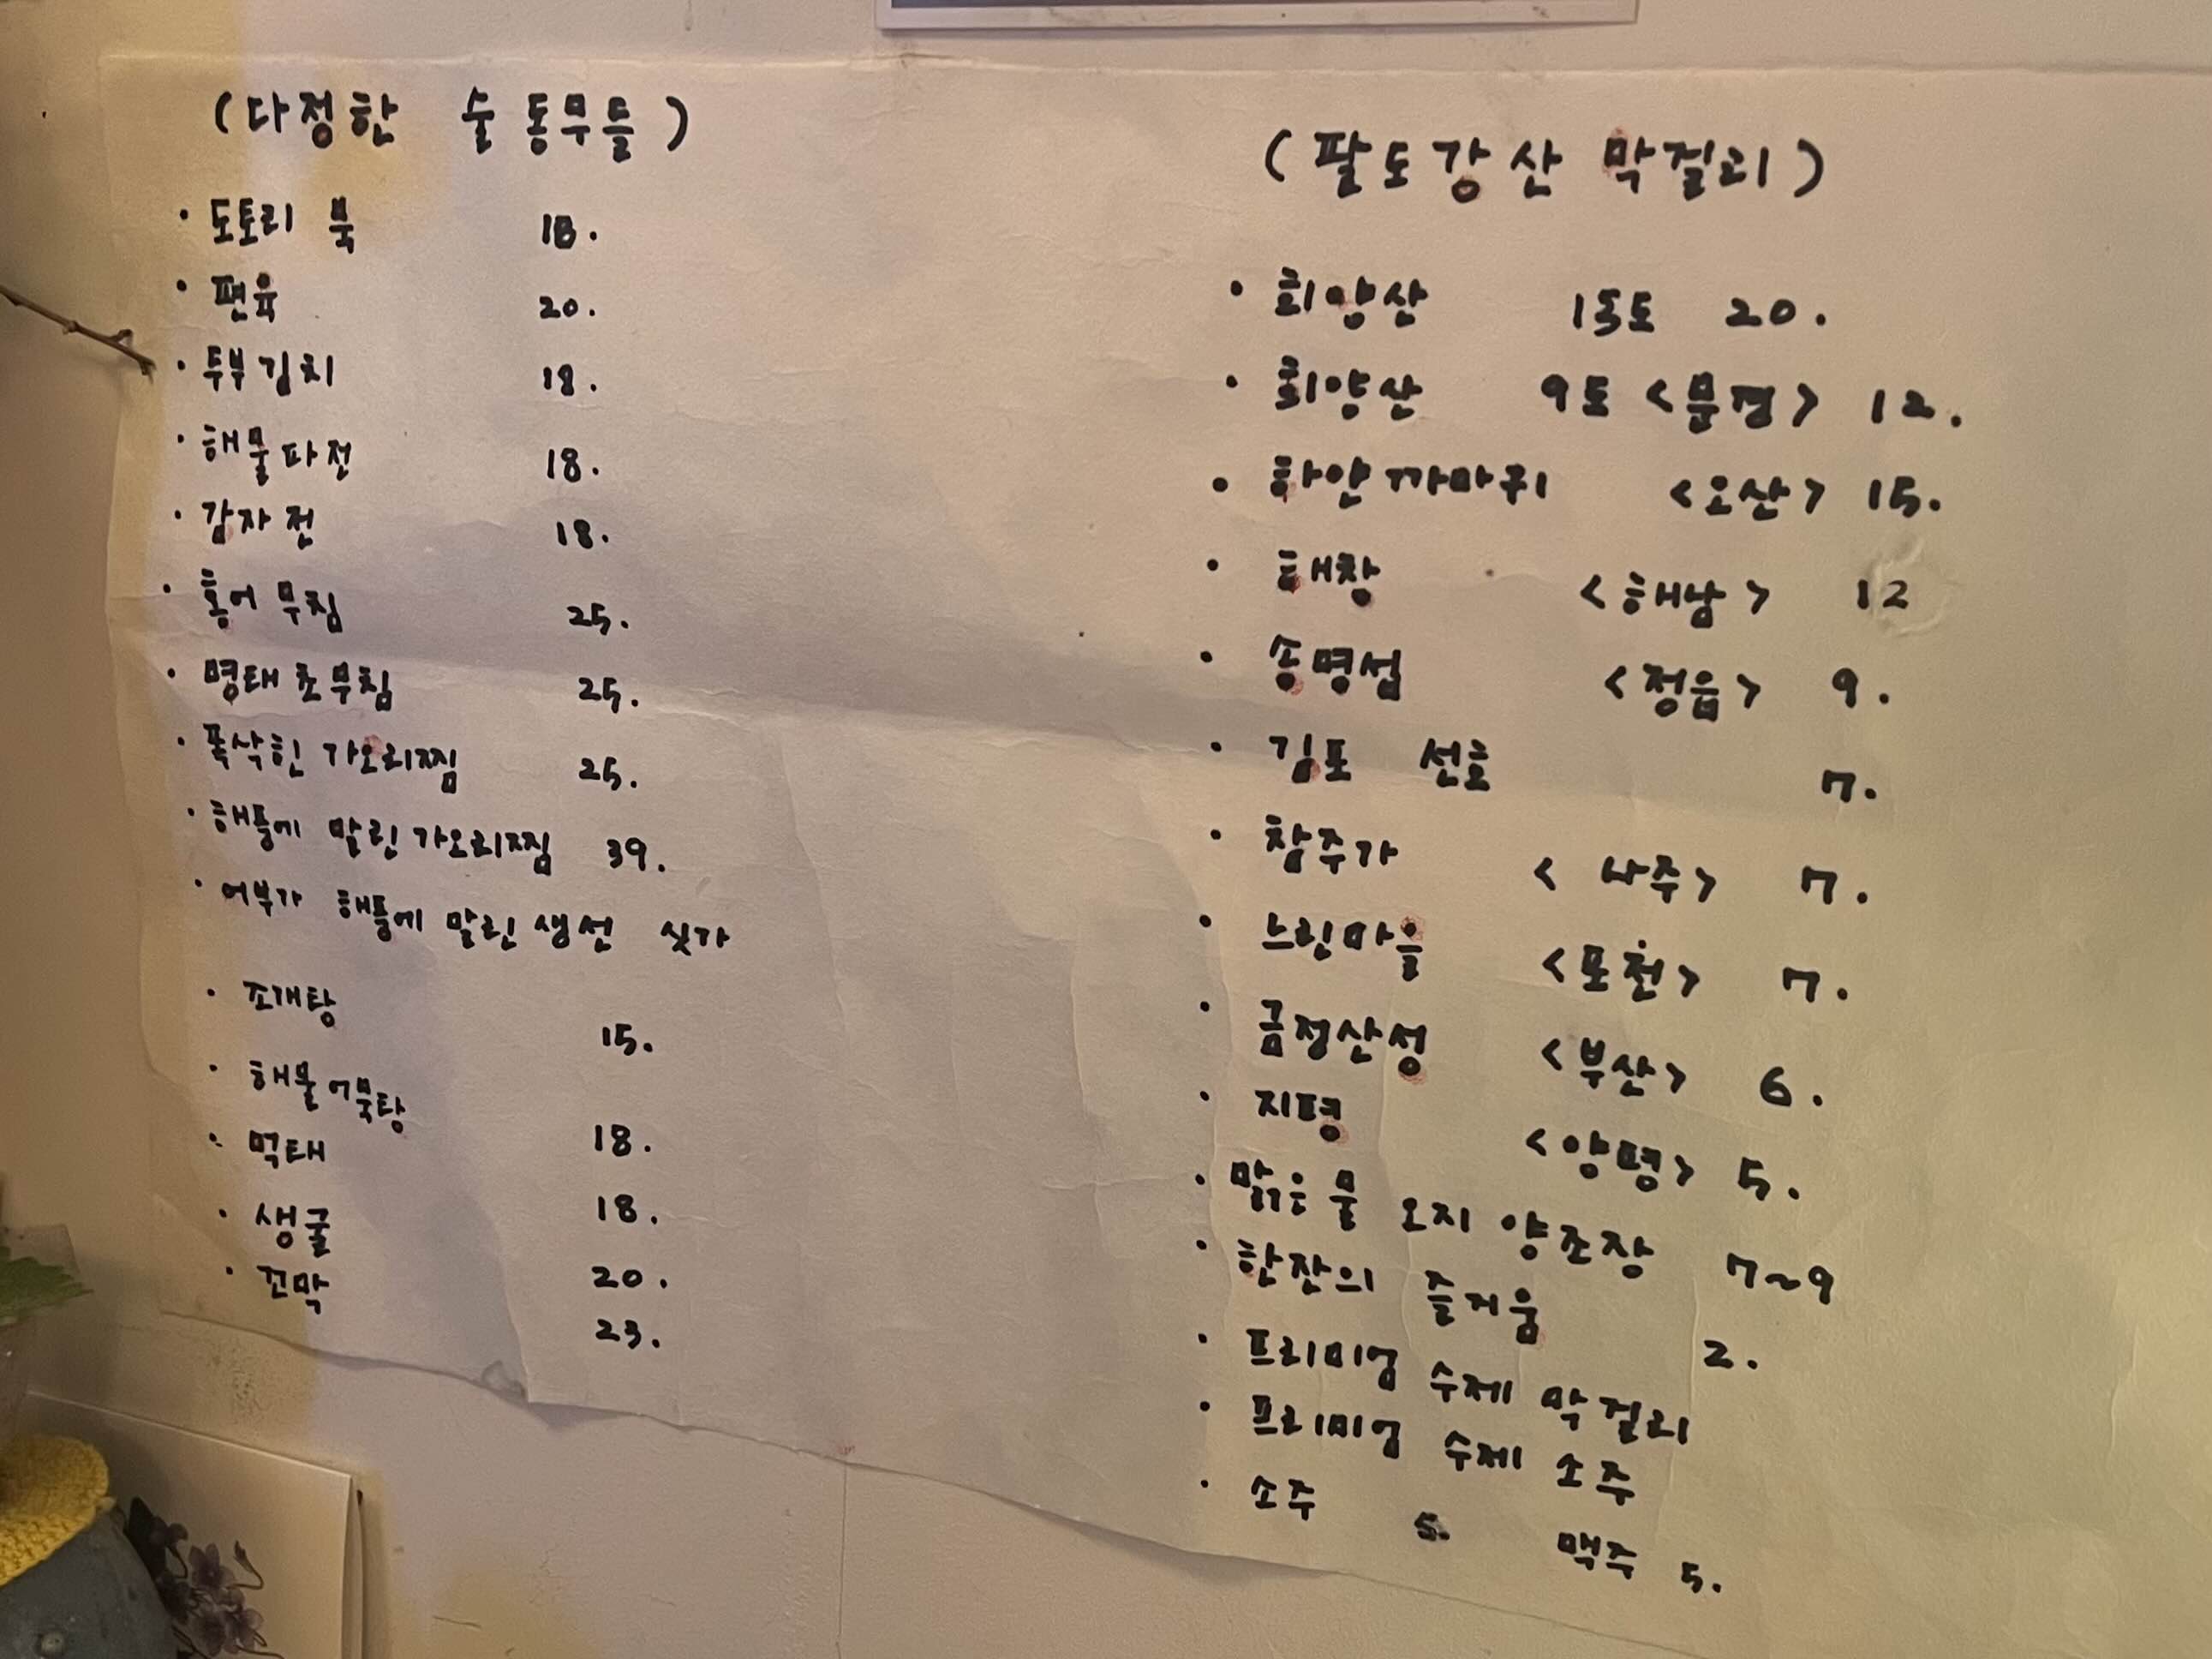 (다정한 술 동무들)
· 도토리 묵 18.
· 편육 20.
· 두부김치 18.
· 해물파전 18.
· 감자전 18.
· 홍어 무침 25.
· 명태 초무침 25.
· 폭삭힌 가오리찜 25.
· 해풍에 말린 가오리찜 39.
· 어부가 해풍에 말린 생선 싯가
· 조개탕 15.
· 해물어묵탕 18.
· 먹태 18.
· 생굴 20.
· 꼬막 23.
(팔도강산 막걸리)
· 희양산 15도 20.
· 희양산 9도 <문경> 12.
· 하얀까마귀 <오산> 15.
· 해창 <해남> 12
· 송명섭 <정읍> 9.
· 김포 선호 7.
· 참주가 <나주> 7.
· 느린마을 <포천> 7.
· 금정산성 <부산> 6.
· 지평 <양평> 5.
· 맑은 물 오지 양조장 7~9
· 한잔의 즐거움 2.
· 프리미엄 수제 막걸리
· 프리미엄 수제 소주
· 소주 5. 맥주 5.